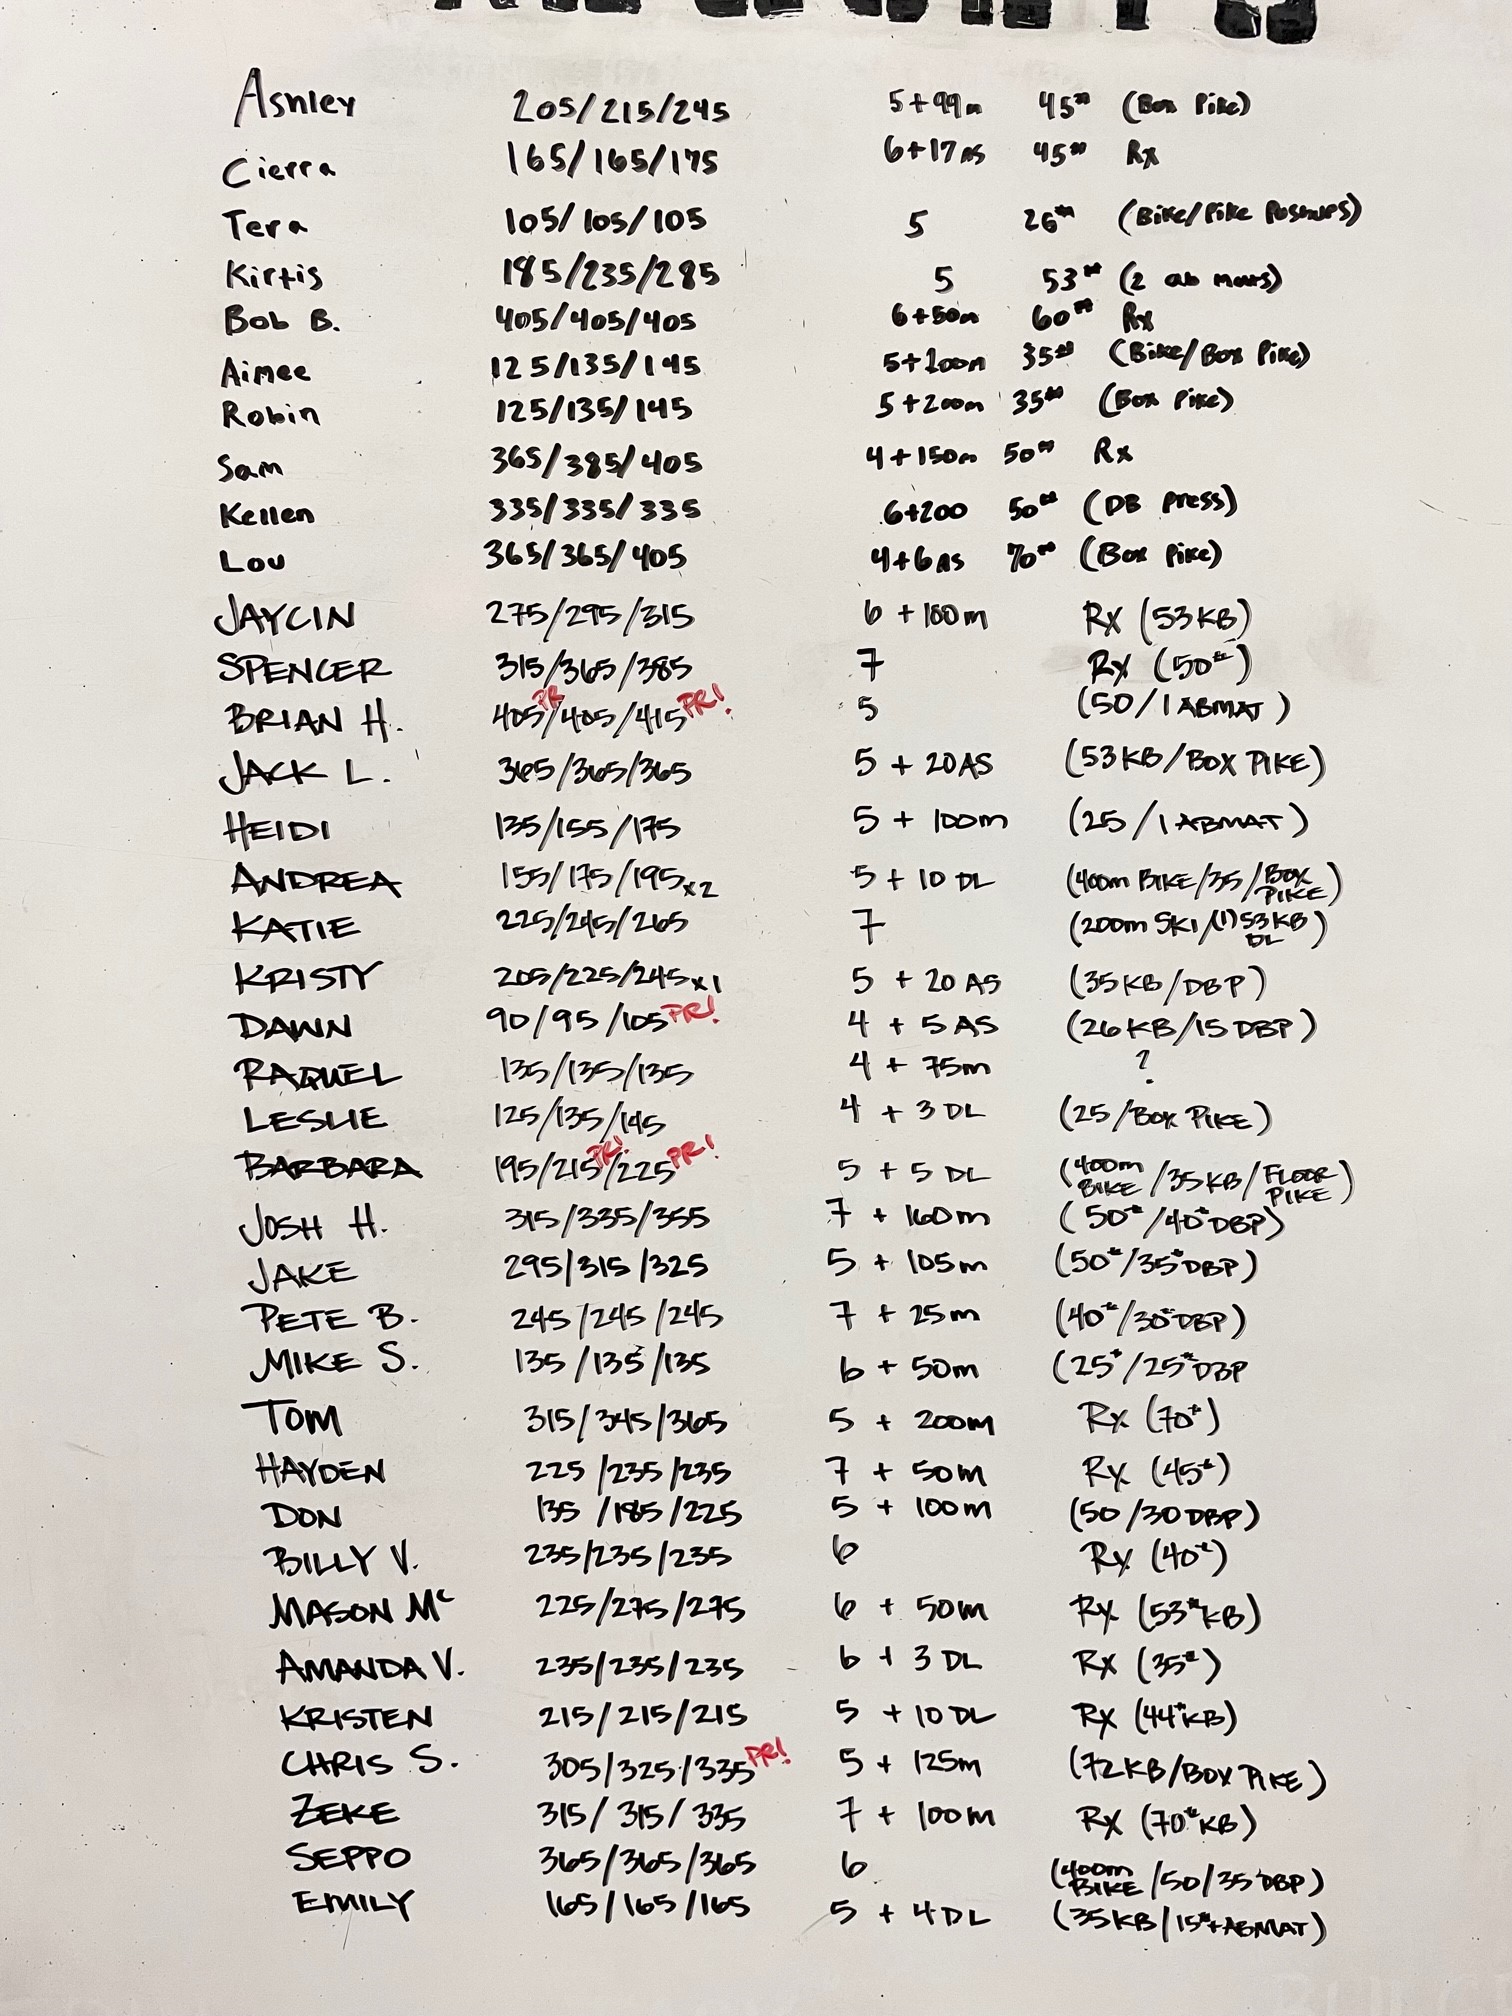 Ashley 205/215/245 5+99m 45# (Box Pike)
Cierra 165/165/175 6+17AS 45# Rx
Tera 105/105/105 5 26# (Bike/Pike Pushups)
Kirtis 185/235/285 5 53# (2 ab mats)
Bob B. 405/405/405 6+50m 60# Rx
Aimee 125/135/145 5+200m 35# (Bike/Box Pike)
Robin 125/135/145 5+200m 35# (Box Pike)
Sam 365/385/405 4+150m 50# Rx
Kellen 335/335/335 6+200 50# (DB press)
Lou 365/365/405 4+6AS 70# (Box Pike)
JAYCIN 275/295/315 6 + 100m Rx (53KB)
SPENCER 315/365/385 7 Rx (50#)
BRIAN H. 405 PR/405/415 PR! 5 (50/1 ABMAT)
JACK L. 365/365/365 5 + 20AS (53KB/BOX PIKE)
HEIDI 135/155/175 5 + 100m (25/1 ABMAT)
ANDREA 155/175/195x2 5 + 10 DL (400m BIKE/35/BOX PIKE)
KATIE 225/245/265 7 (200m SKI/(1)53KB DL)
KRISTY 205/225/245x1 5 + 20 AS (35KB/DBP)
DAWN 90/95/105 PR! 4 + 5 AS (26KB/15 DBP)
RAQUEL 135/135/135 4 + 75m ?
LESLIE 125/135/145 4 + 3 DL (25/BOX PIKE)
BARBARA 195/215 PR!/225 PR! 5 + 5 DL (400m BIKE/35KB/FLOOR PIKE)
JOSH H. 315/335/355 7 + 160m (50#/40#DBP)
JAKE 295/315/325 5 + 105m (50#/35#DBP)
PETE B. 245/245/245 7 + 25m (40#/30#DBP)
MIKE S. 135/135/135 6 + 50m (25#/25#DBP
TOM 315/345/365 5 + 200m Rx (70#)
HAYDEN 225/235/235 7 + 50m Rx (45#)
DON 135/185/225 5 + 100m (50/30 DBP)
BILLY V. 235/235/235 6 Rx (40#)
MASON Mc 225/275/275 6 + 50m Rx (53#KB)
AMANDA V. 235/235/235 6 + 3 DL Rx (35#)
KRISTEN 215/215/215 5 + 10 DL Rx (44#KB)
CHRIS S. 305/325/335 PR! 5 + 125m (72KB/BOX PIKE)
ZEKE 315/315/335 7 + 100m Rx (70#KB)
SEPPO 365/365/365 6 (400m BIKE/50/35 DBP)
EMILY 165/165/165 5 + 4 DL (35KB/15#+ABMAT)